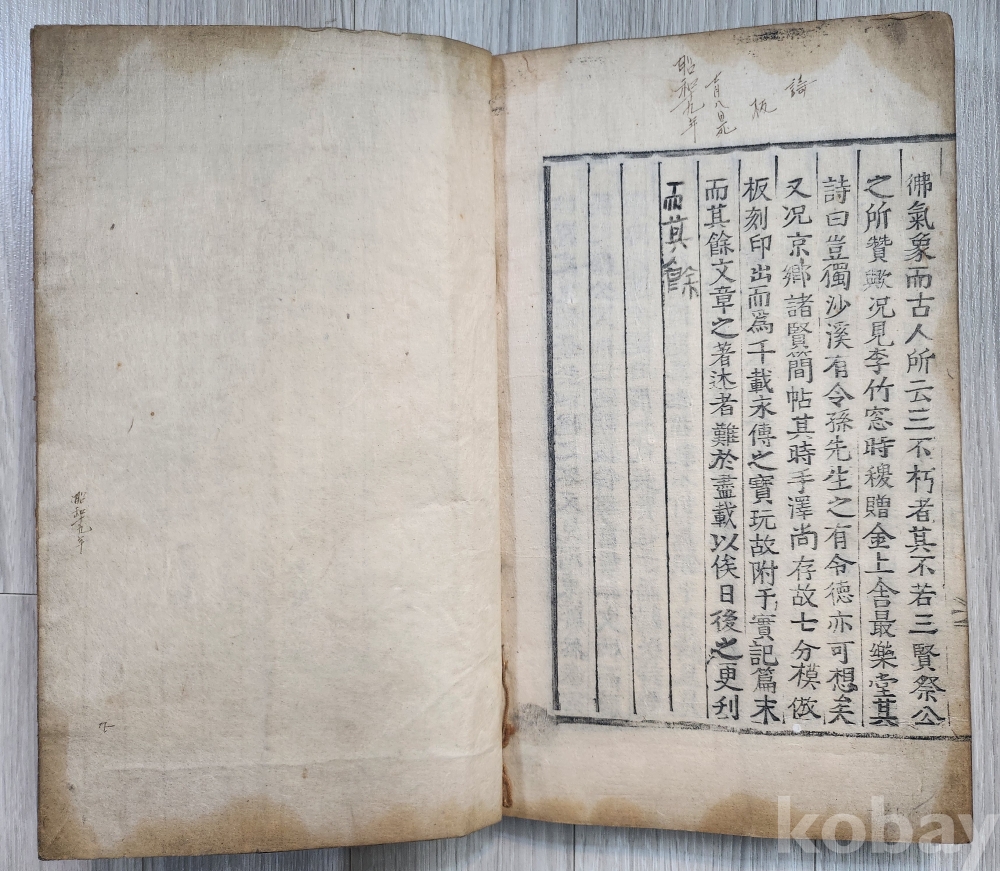 佛氣象而古人所云三不朽者其不若三賢祭公
之所贊歟况見李竹窓時稷贈金上舍最樂堂其
詩曰豈獨沙溪有令孫先生之有令德亦可想矣
又况京鄉諸賢簡帖其時手澤尚存故七分模倣
板刻印出而爲千載永傳之寶玩故附于實記篇末
而其餘文章之著述者難於盡載以俟日後之更刊
而其餘
板
昭和九年
昭和九年
kobay